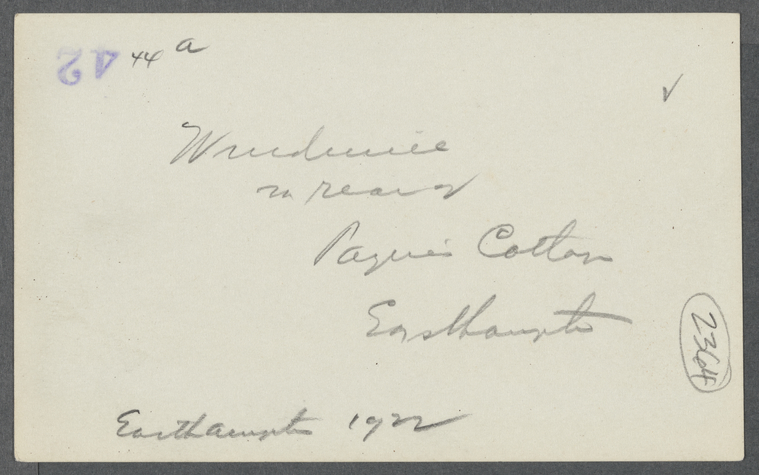 42 44 a
✓
Windmill
in rear of
Payne's Cottage
Easthampton
2364
Easthampton 1922